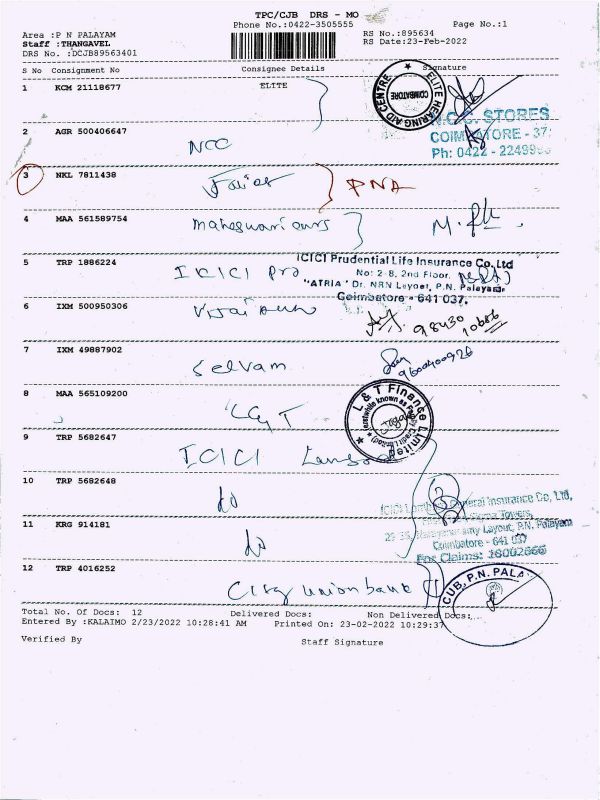 TPC/CJB DRS - MO
Phone No.:0422-3505555 Page No.:1
Area : P N PALAYAM RS No.:895634
Staff : THANGAVEL RS Date:23-Feb-2022
DRS No. :DCJB89563401
S No Consignment No Consignee Details Signature
1 KCM 21118677 ELITE
ELITE HEARING AID CENTRE
COIMBATORE
STORES
COIMBATORE - 37
Ph: 0422 - 2249
2 AGR 500406647
NCC
3 NKL 7811438
PNA
4 MAA 561589754
Maheswari
5 TRP 1886224
ICICI Pro
ICICI Prudential Life Insurance Co. Ltd
No: 2-8, 2nd Floor,
"ATRIA" Dr. NRN Layout, P.N. Palayam
Coimbatore - 641 037.
6 IXM 500950306
98430
10686
7 IXM 49887902
Selvam
9600400926
8 MAA 565109200
L&T
L & T Finance Limited
9 TRP 5682647
ICICI
10 TRP 5682648
do
11 KRG 914181
do
ICICI Lombard General Insurance Co, Ltd,
Layout, P.N. Palayam
Coimbatore - 641 037
For Claims: 18002666
12 TRP 4016252
City union bank
CUB, P.N. PALA
Total No. Of Docs: 12 Delivered Docs: Non Delivered Docs:
Entered By :KALAIMO 2/23/2022 10:28:41 AM Printed On: 23-02-2022 10:29:37
Verified By Staff Signature